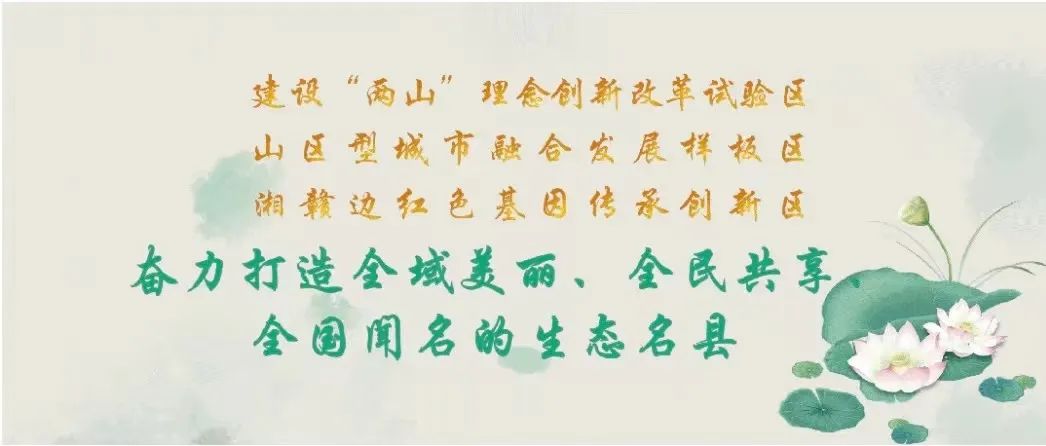 建设“两山”理念创新改革试验区
山区型城市融合发展样板区
湘赣边红色基因传承创新区
奋力打造全域美丽、全民共享、
全国闻名的生态名县